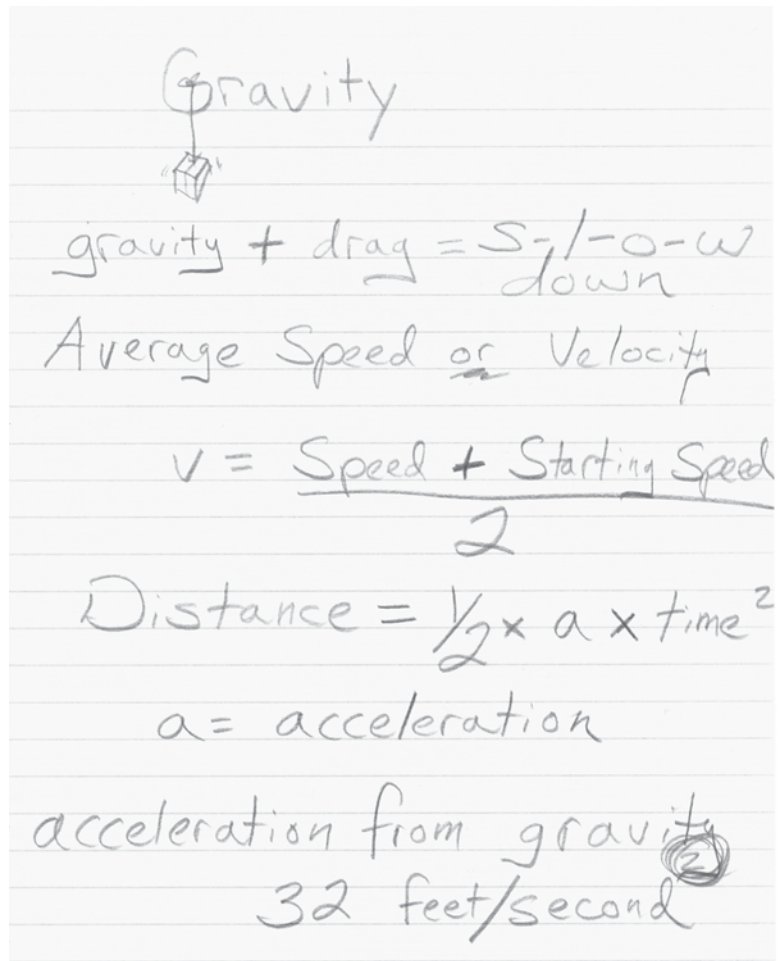 Gravity
gravity + drag = S-l-o-w
down
Average Speed or Velocity
v = Speed + Starting Speed
2
Distance = 1/2 x a x time²
a = acceleration
acceleration from gravity
32 feet/second²